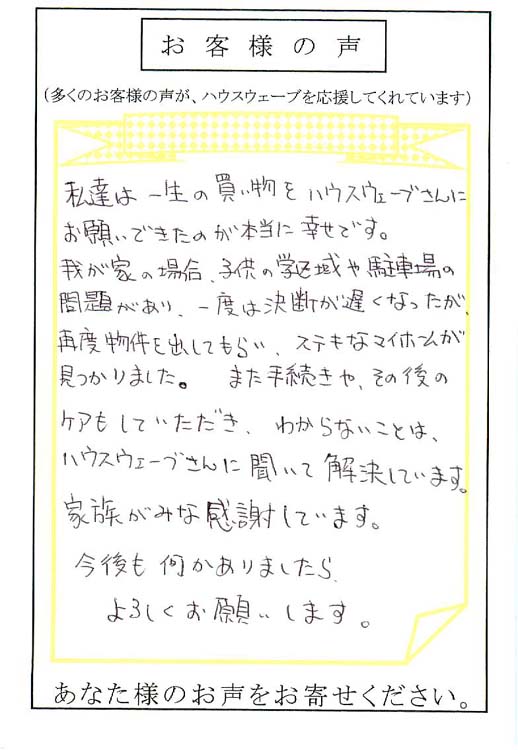 お客様の声
（多くのお客様の声が、ハウスウェーブを応援してくれています）
私達は一生の買い物をハウスウェーブさんに
お願いできたのが本当に幸せです。
我が家の場合、子供の学区域や駐車場の
問題があり、一度は決断が遅くなったが、
再度物件を出してもらい、ステキなマイホームが
見つかりました。 また手続きや、その後の
ケアもしていただき、わからないことは、
ハウスウェーブさんに聞いて解決しています。
家族がみな感謝しています。
今後も何かありましたら、
よろしくお願いします。
あなた様のお声をお寄せください。